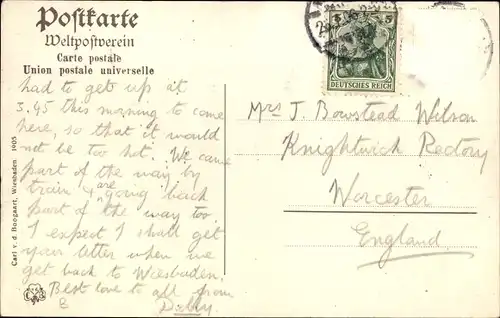 Postkarte
Weltpostverein
Carte postale
Union postale universelle
had to get up at
3.45 this morning to come
here, so that it would
not be too hot. We came
part of the way by
train & are going back
part of the way too.
I expect I shall get
your letter when we
get back to Wiesbaden.
Best love to all from
Dolly.
Carl v. d. Boogaart, Wiesbaden 1905
5
DEUTSCHES REICH
Mrs J. Bowstead Wilson
Knightwick Rectory
Worcester
England